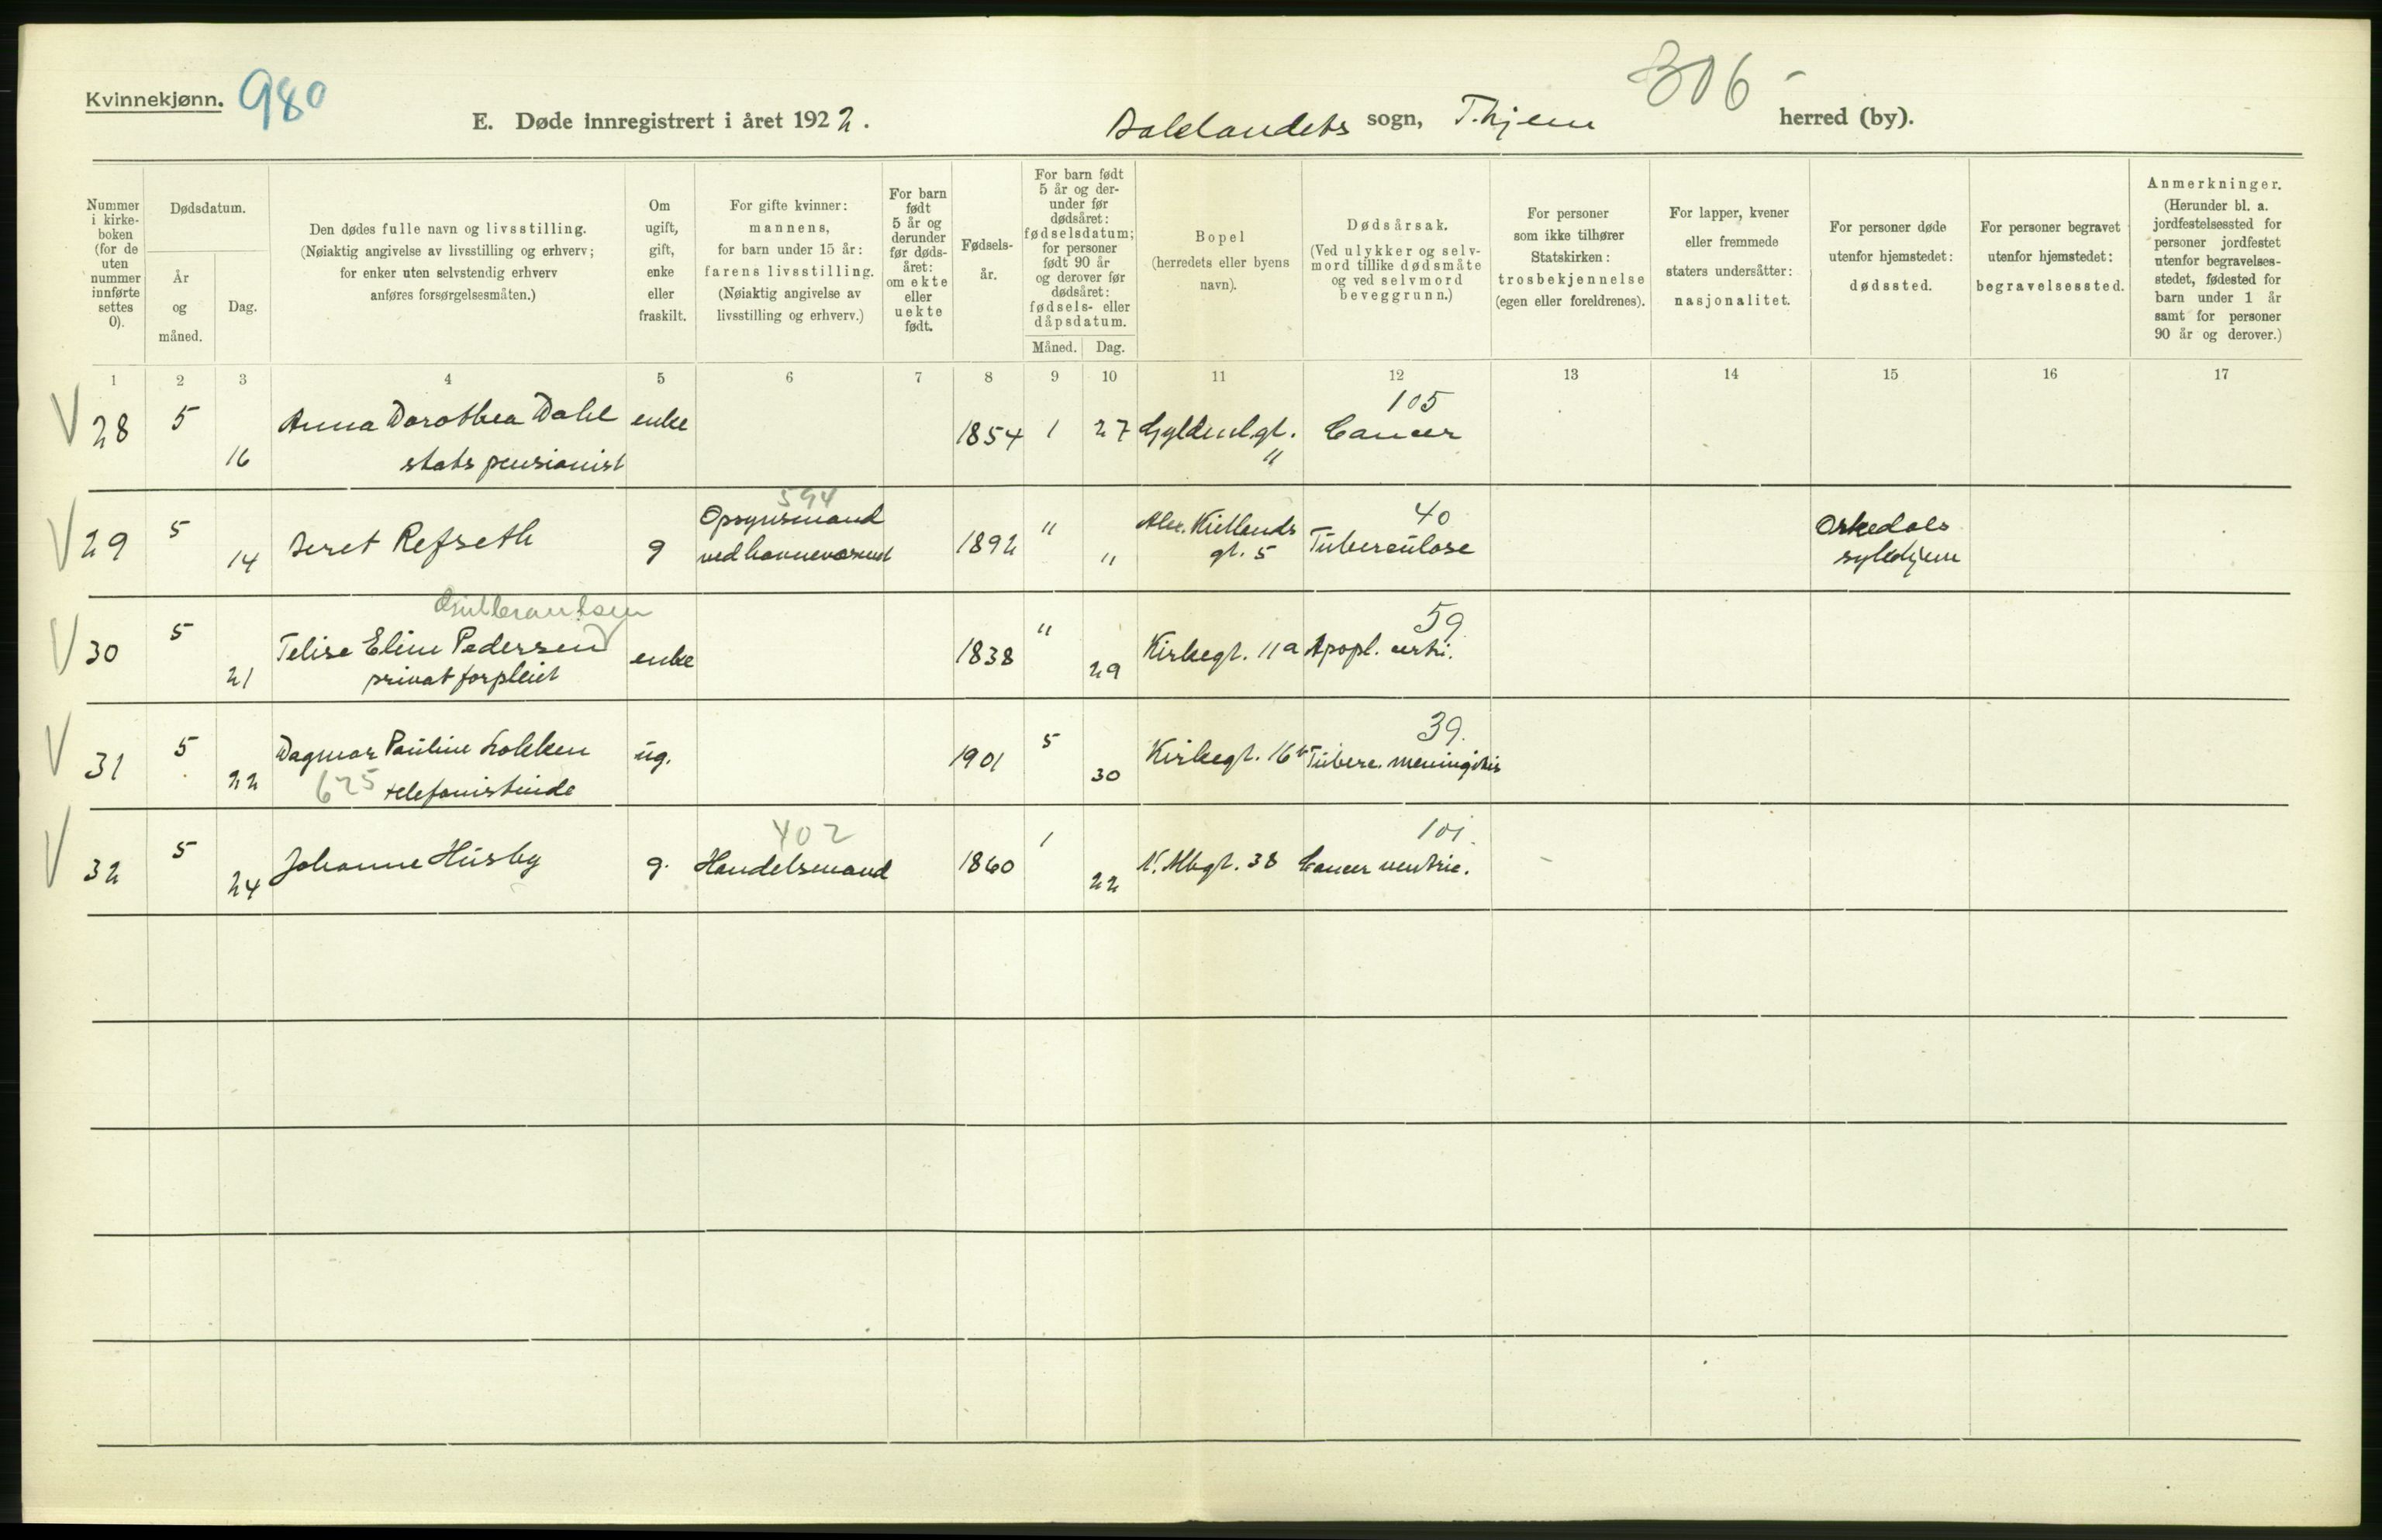 Kvinnekjønn. 980
306
E. Døde innregistrert i året 1922. Baklandets sogn, T.hjem herred (by).
Nummer i kirkeboken (for de uten nummer innførte settes 0).
Dødsdatum.
År og måned.
Dag.
Den dødes fulle navn og livsstilling.
(Nøiaktig angivelse av livsstilling og erhverv;
for enker uten selvstendig erhverv
anføres forsørgelsesmåten.)
Om ugift, gift, enke eller fraskilt.
For gifte kvinner:
mannens,
for barn under 15 år:
farens livsstilling.
(Nøiaktig angivelse av
livsstilling og erhverv.)
For barn født 5 år og derunder før dødsåret: om ekte eller uekte født.
Fødselsår.
For barn født 5 år og derunder før dødsåret: fødselsdatum; for personer født 90 år og derover før dødsåret: fødsels- eller dåpsdatum.
Måned. Dag.
Bopel
(herredets eller byens
navn).
Dødsårsak.
(Ved ulykker og selvmord tillike dødsmåte og ved selvmord beveggrunn.)
For personer
som ikke tilhører
Statskirken:
trosbekjennelse
(egen eller foreldrenes).
For lapper, kvener
eller fremmede
staters undersåtter:
nasjonalitet.
For personer døde
utenfor hjemstedet:
dødssted.
For personer begravet
utenfor hjemstedet:
begravelsessted.
Anmerkninger.
(Herunder bl. a.
jordfestelsessted for
personer jordfestet
utenfor begravelses-
stedet, fødested for
barn under 1 år
samt for personer
90 år og derover.)
1 2 3 4 5 6 7 8 9 10 11 12 13 14 15 16 17
105
V 28 5 Anna Dorothea Dahl enke 1854 1 27 Gyldenl.gt. Cancer
16 stats pensionist "
594 40
V 29 5 14 Seret Refseth g Opsynsmand 1892 " " Alex. Kiellands Tuberculose Orkedals
ved havnevæsenet gt. 5 sykehjem
59
V 30 5 Telise Eline Pedersen enke 1838 " 29 Kirkegt. 11a Apopl. cerbri.
21 privat forpleiet
39.
V 31 5 22 Dagmar Pauline Løkken ug. 1901 5 30 Kirkegt. 16b Tuberc. meningitis
625 telefonistinde
402 101
V 32 5 24 Johanne Husby g. Handelsmand 1860 1 22 N. Mbgt. 38 Cancer ventric.